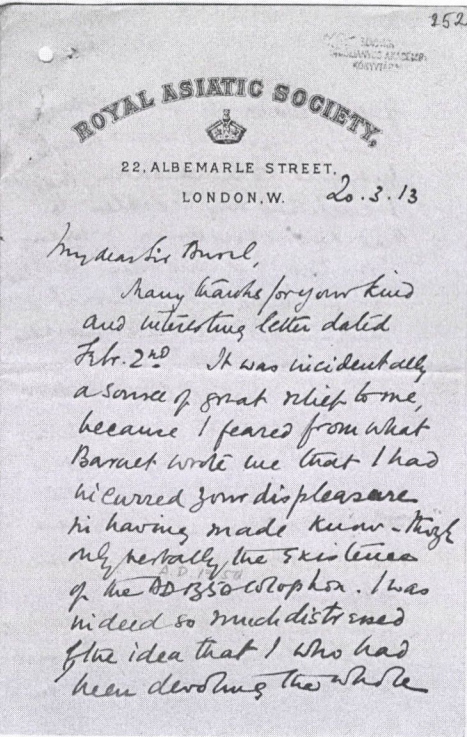 252
ROYAL ASIATIC SOCIETY,
22, ALBEMARLE STREET,
LONDON, W.
20.3.13
My dear Sir Aurel,
Many thanks for your kind
and interesting letter dated
Febr. 2nd It was incidentally
a source of great relief to me,
because I feared from what
Barnet wrote me that I had
incurred your displeasure
in having made know - though
only verbally the existence
of the AD 1350 colophon. I was
indeed so much distressed
the idea that I who had
been devoting the whole